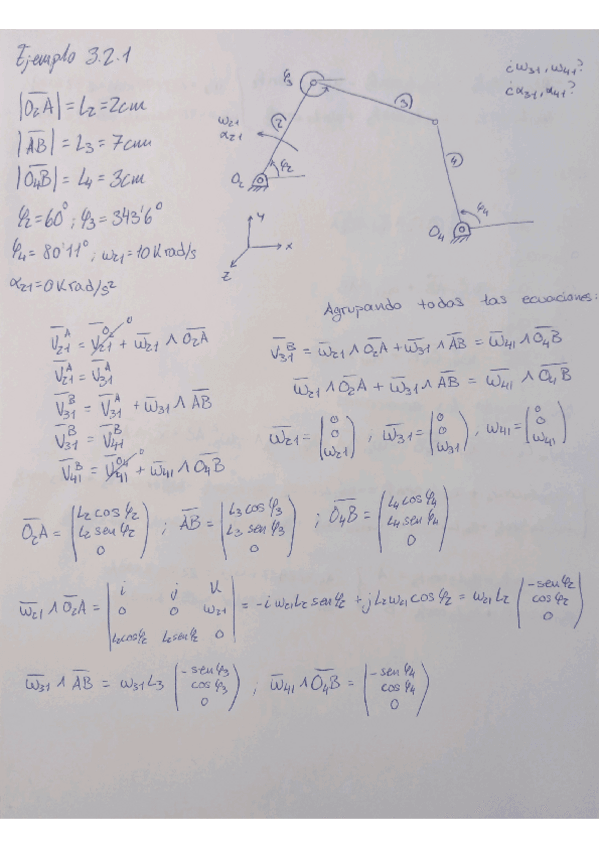 Ejemplo 3.2.1
|O₂A| = L₂ = 2cm
|AB| = L₃ = 7cm
|O₄B| = L₄ = 3cm
φ₂ = 60°; φ₃ = 343'6°
φ₄ = 80'11°; ω₂₁ = 10 K rad/s
α₂₁ = 0 K rad/s²
¿ω₃₁, ω₄₁?
¿α₃₁, α₄₁?
φ₃
3
2
ω₂₁
α₂₁
φ₂
O₂
4
φ₄
O₄
y
x
z
V₂₁ᴬ = V₂₁ᴼ² 0 + ω₂₁ ∧ O₂A
V₂₁ᴬ = V₃₁ᴬ
V₃₁ᴮ = V₃₁ᴬ + ω₃₁ ∧ AB
V₃₁ᴮ = V₄₁ᴮ
V₄₁ᴮ = V₄₁ᴼ⁴ 0 + ω₄₁ ∧ O₄B
Agrupando todas las ecuaciones:
V₃₁ᴮ = ω₂₁ ∧ O₂A + ω₃₁ ∧ AB = ω₄₁ ∧ O₄B
ω₂₁ ∧ O₂A + ω₃₁ ∧ AB = ω₄₁ ∧ O₄B
ω₂₁ = (0 0 ω₂₁); ω₃₁ = (0 0 ω₃₁); ω₄₁ = (0 0 ω₄₁)
O₂A = (L₂ cos φ₂ L₂ sen φ₂ 0); AB = (L₃ cos φ₃ L₃ sen φ₃ 0); O₄B = (L₄ cos φ₄ L₄ sen φ₄ 0)
ω₂₁ ∧ O₂A = |i j K 0 0 ω₂₁ L₂cosφ₂ L₂senφ₂ 0| = -i ω₂₁ L₂ sen φ₂ + j L₂ ω₂₁ cos φ₂ = ω₂₁ L₂ (-sen φ₂ cos φ₂ 0)
ω₃₁ ∧ AB = ω₃₁ L₃ (-sen φ₃ cos φ₃ 0); ω₄₁ ∧ O₄B = (-sen φ₄ cos φ₄ 0)